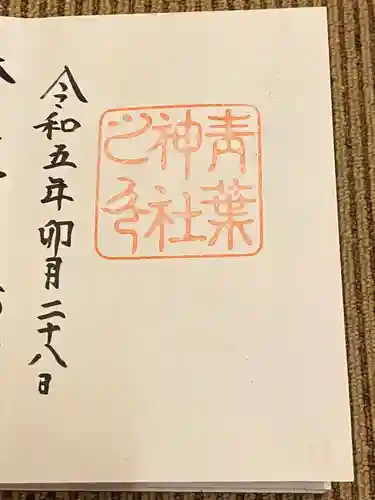 青葉
神社
之印
令和五年卯月二十八日